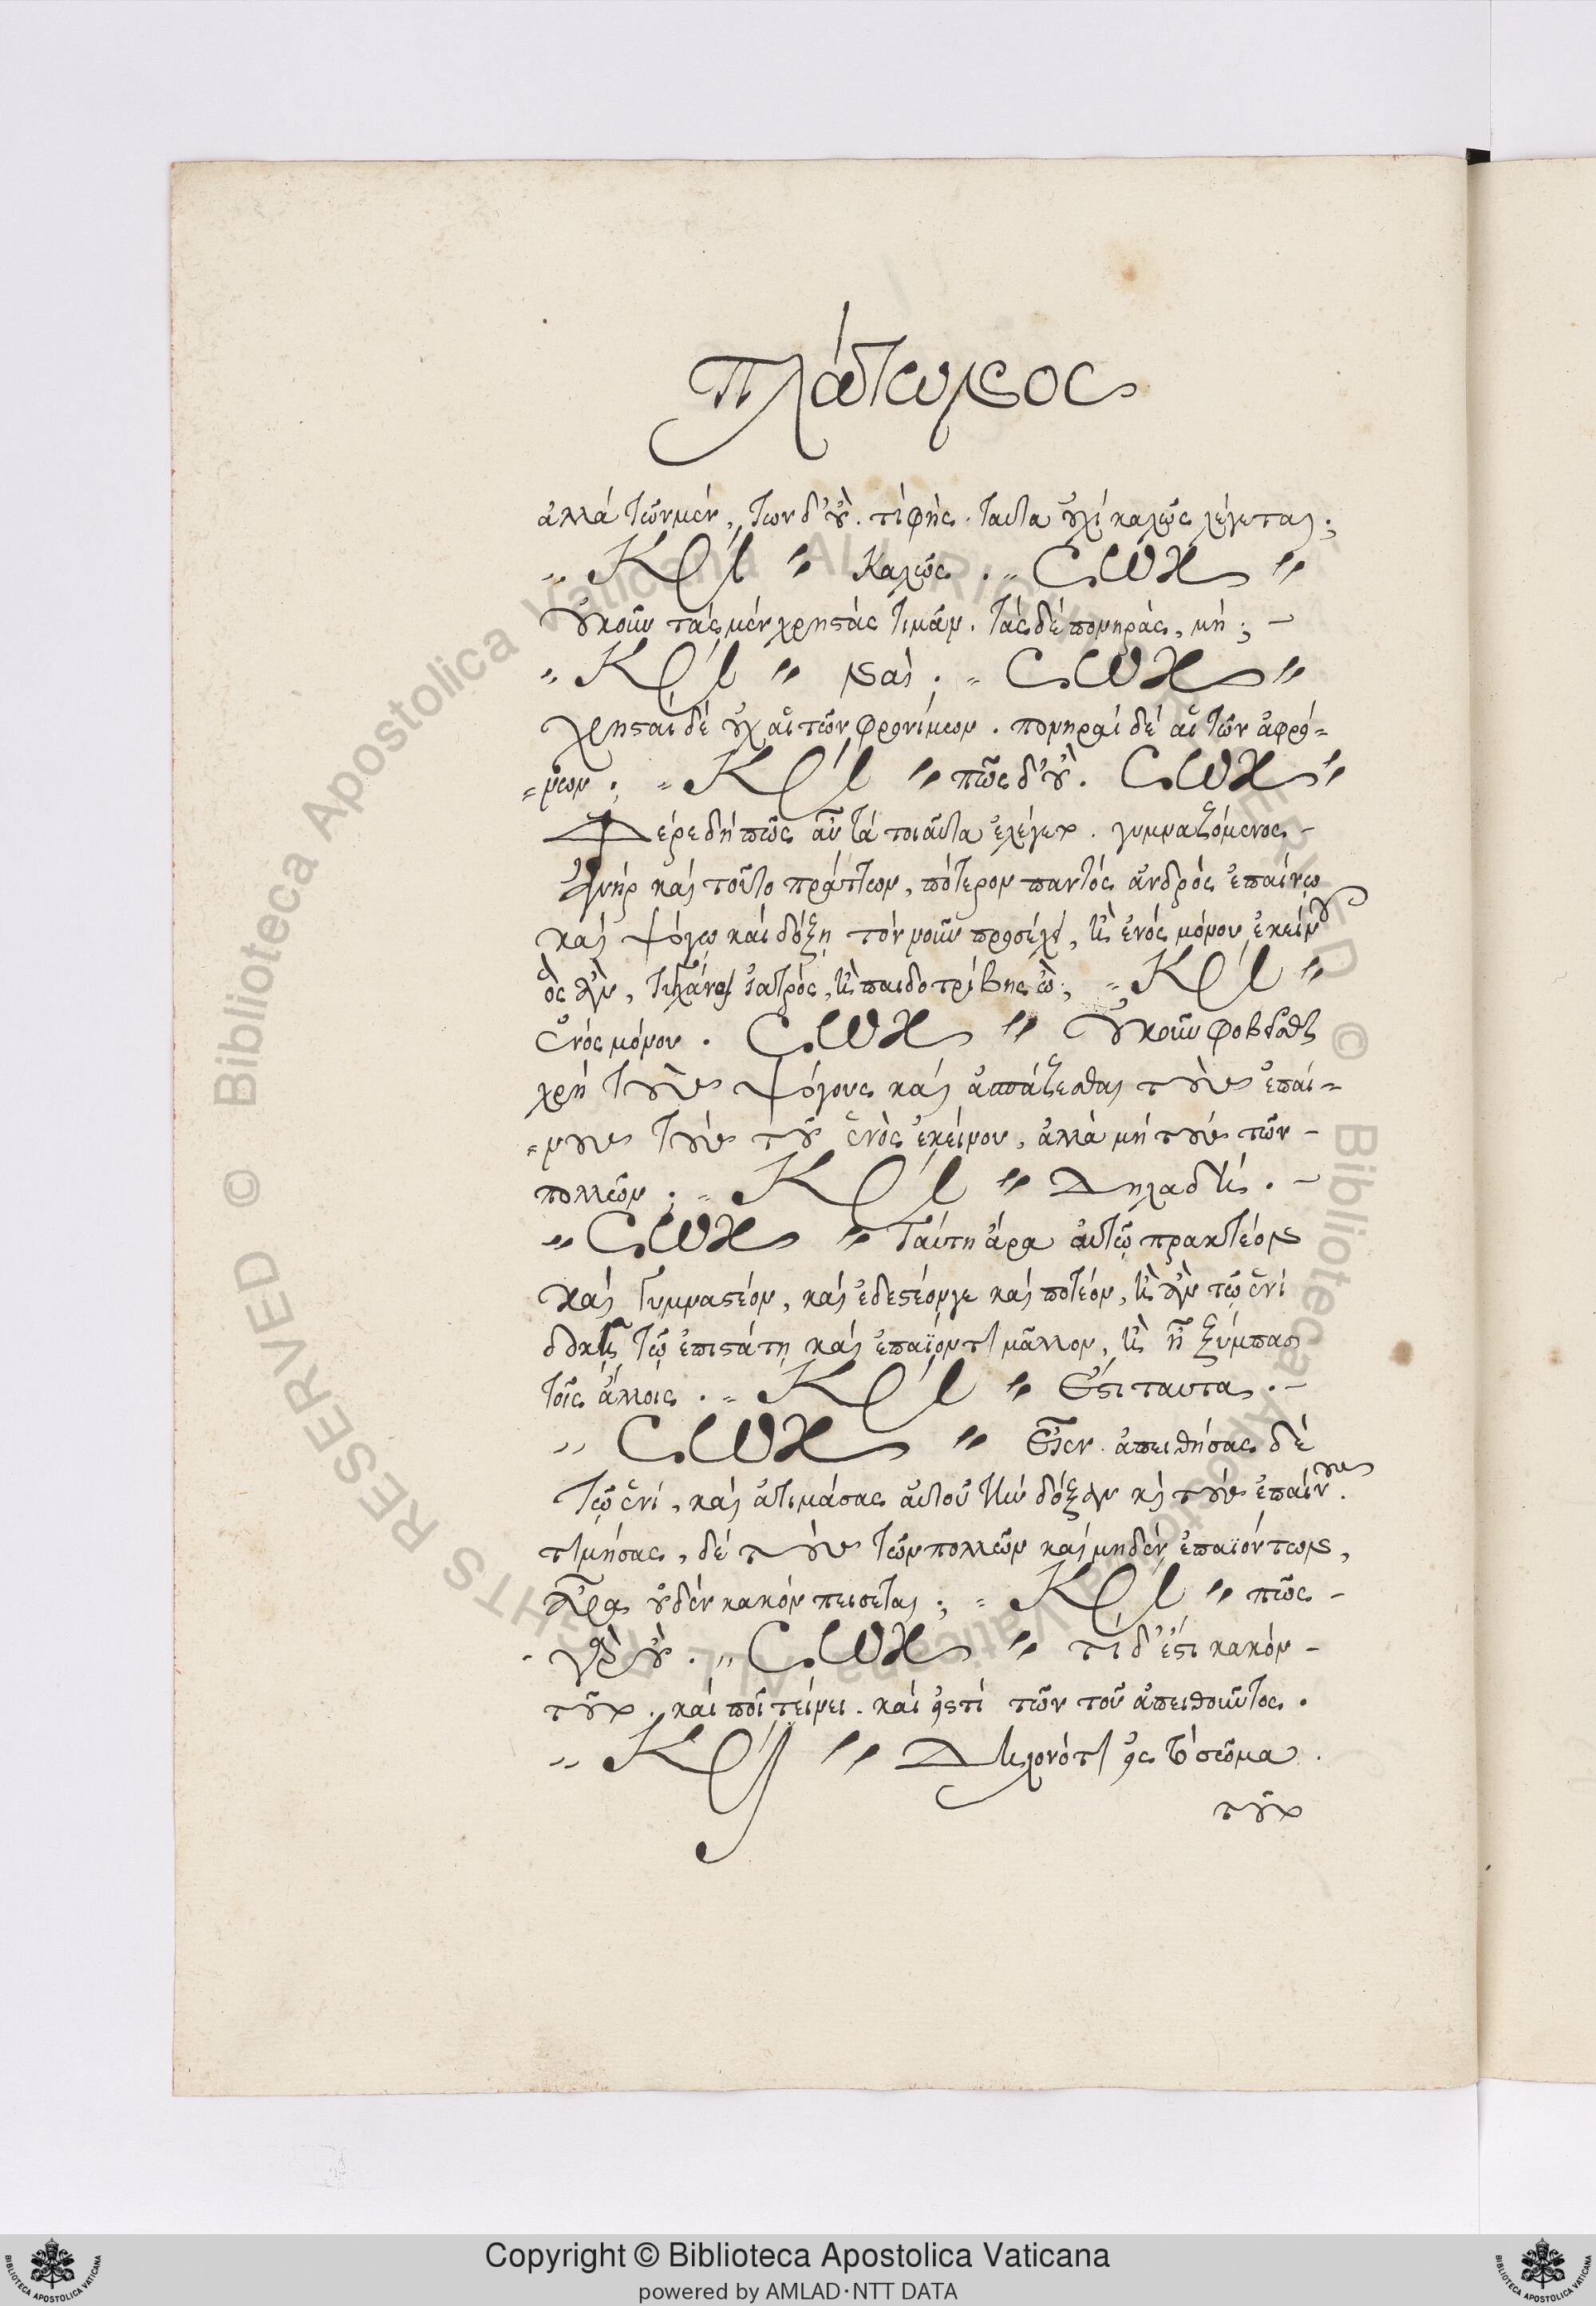 πλάτωνος
ἀλλὰ τῶν μέν, των δ' οὔ. τί φής. ταῦτα οὐχὶ καλῶς λέγεται;
" ΚΡΙ " Καλῶς. " ΣΩΚ "
οὐκοῦν τὰς μὲν χρηστὰς τιμᾶν. τὰς δὲ πονηρὰς, μή; –
" ΚΡΙ " ναί. " ΣΩΚ "
χρησταὶ δὲ οὐχ αἱ τῶν φρονίμων. πονηραὶ δὲ αἱ τῶν ἀφρό=
=νων; " ΚΡΙ " πῶς δ' οὔ. ΣΩΚ "
Φέρε δὴ πῶς αὖ τὰ τοιαῦτα ἐλέγετο. γυμναζόμενος –
ἀνὴρ καὶ τοῦτο πράττων, πότερον παντὸς ἀνδρὸς ἐπαίνῳ
καὶ ψόγῳ καὶ δόξῃ τὸν νοῦν προσέχει, ἢ ἑνὸς μόνου ἐκείνου
ὃς ἂν, τυγχάνῃ ἰατρὸς, ἢ παιδοτρίβης ὤν; " ΚΡΙ "
ἑνὸς μόνου. ΣΩΚ " οὐκοῦν φοβεῖσθαι
χρὴ τοὺς ψόγους καὶ ἀσπάζεσθαι τοὺς ἐπαί=
=νους τοὺς τοῦ ἑνὸς ἐκείνου, ἀλλὰ μὴ τοὺς τῶν –
πολλῶν; " ΚΡΙ " Δηλαδή. –
" ΣΩΚ " Ταύτῃ ἄρα αὐτῷ πρακτέον
καὶ γυμναστέον, καὶ ἐδεστέον γε καὶ ποτέον, ἢ ἂν τῷ ἑνὶ
δοκῇ τῷ ἐπιστάτῃ καὶ ἐπαΐοντι μᾶλλον, ἢ ᾗ ξύμπασι
τοῖς ἄλλοις. " ΚΡΙ " Ἔστι ταῦτα. –
" ΣΩΚ " Εἶεν. ἀπειθήσας δὲ
τῷ ἑνί, καὶ ἀτιμάσας αὐτοῦ τὴν δόξαν καὶ τοὺς ἐπαίνους.
τιμήσας, δὲ τοὺς τῶν πολλῶν καὶ μηδὲν ἐπαϊόντων,
ἆρα οὐδὲν κακὸν πείσεται; " ΚΡΙ " πῶς –
γὰρ οὔ. " ΣΩΚ " τί δ' ἔστι κακὸν –
τοῦτο. καὶ ποῖ τείνει. καὶ εἰς τί τῶν τοῦ ἀπειθοῦντος.
" ΚΡΙ " Δῆλον ὅτι εἰς τὸ σῶμα.
τοῦτο
Copyright © Biblioteca Apostolica Vaticana
powered by AMLAD·NTT DATA